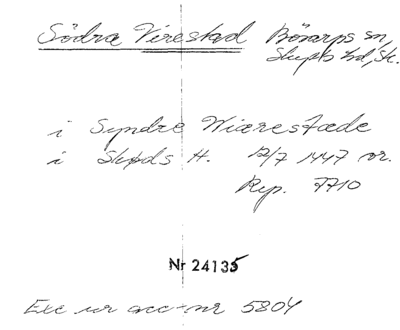 Södra Virestad Bösarps sn,
Skytts hd, Sk.
i Syndre Wiærestade
i Skytds H. 12/7 1447 or.
Rep. 7710
Nr 24135
Exc ur acc-nr 5804